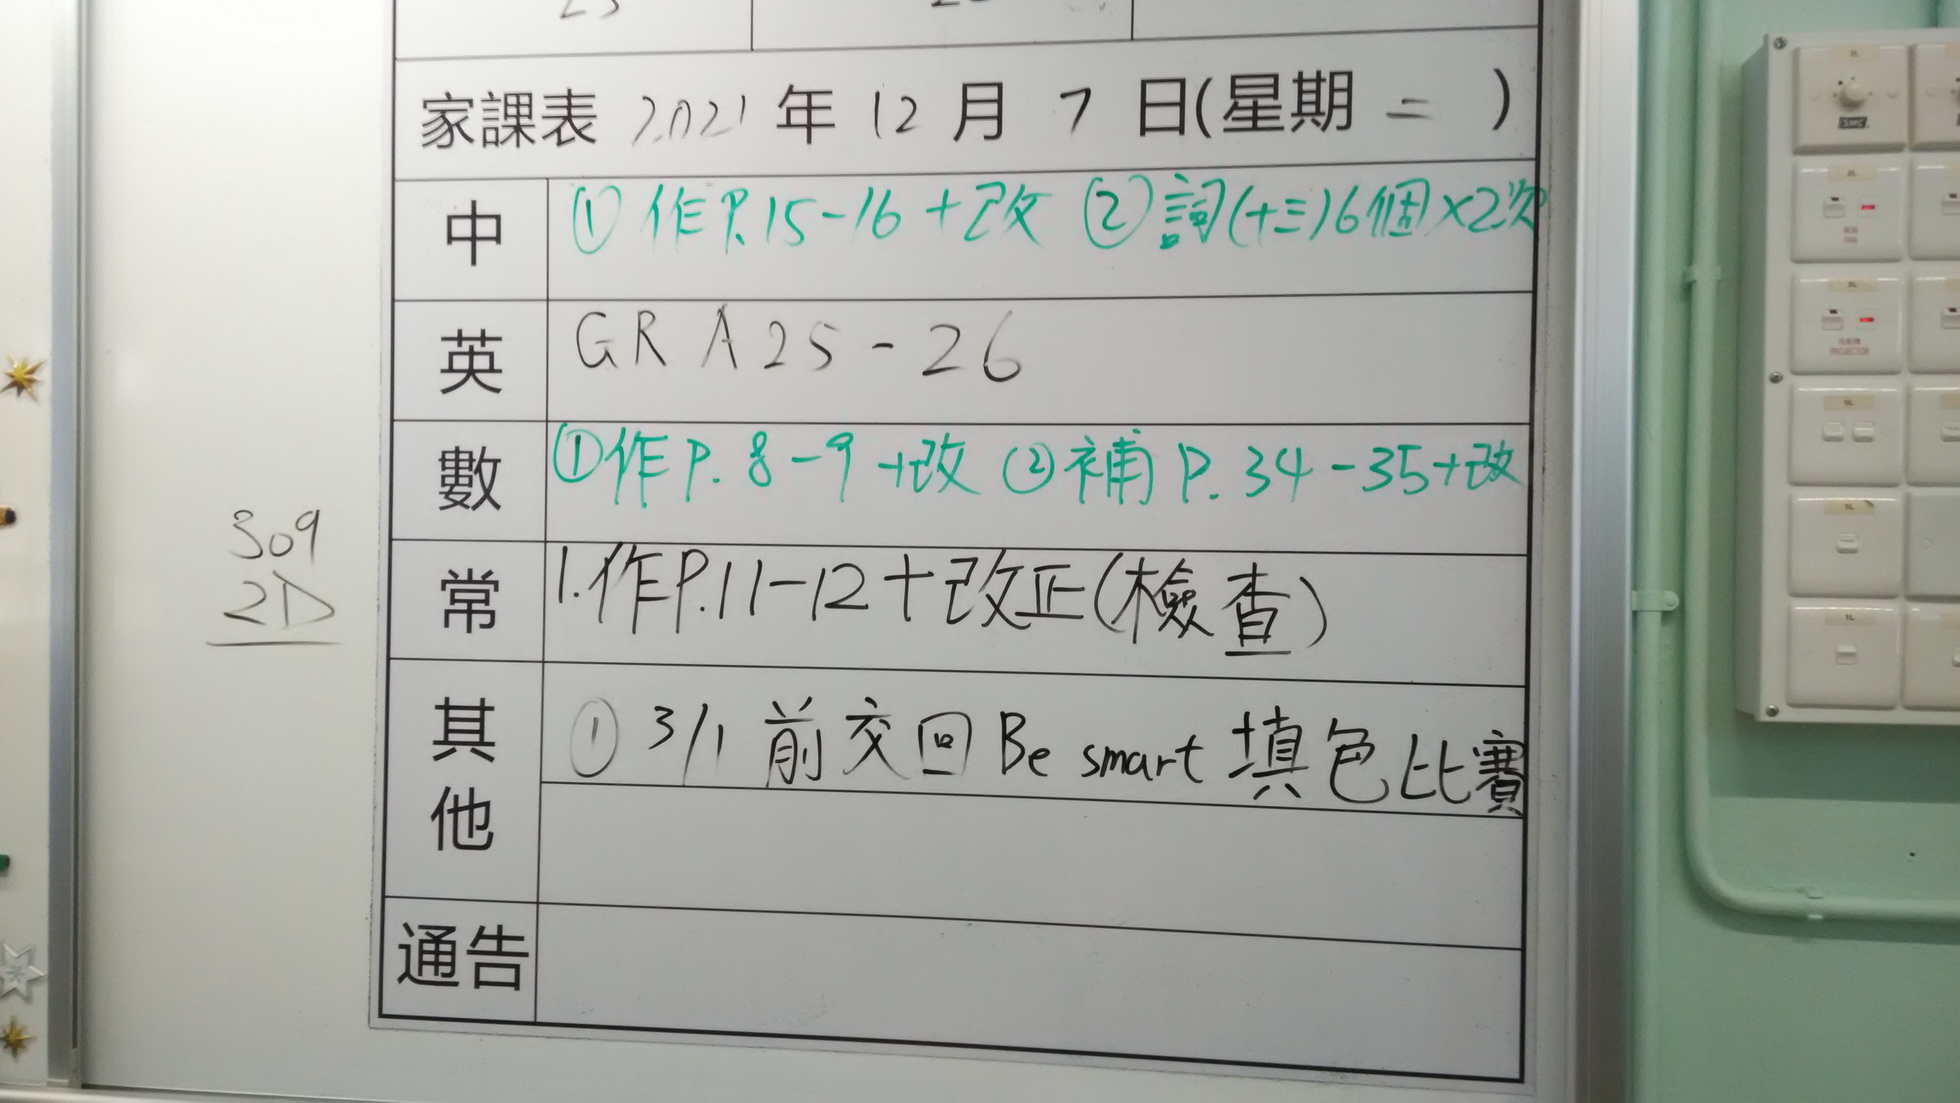 家課表 2021 年 12 月 7 日(星期 二 )
中 ① 作P.15-16+改 ② 詞(十三)6個×2次
英 GR A25-26
數 ①作P.8-9+改 ②補P.34-35+改
常 1.作P.11-12+改正(檢查)
其他 ① 3/1 前交回 Be smart 填色比賽
通告
309
2D